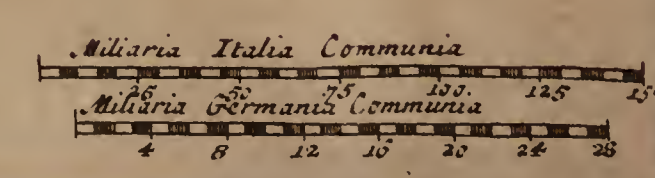 Miliaria Italia Communia
25 50 75 100. 125 15
Miliaria Germania Communia
4 8 12 16 20 24 28